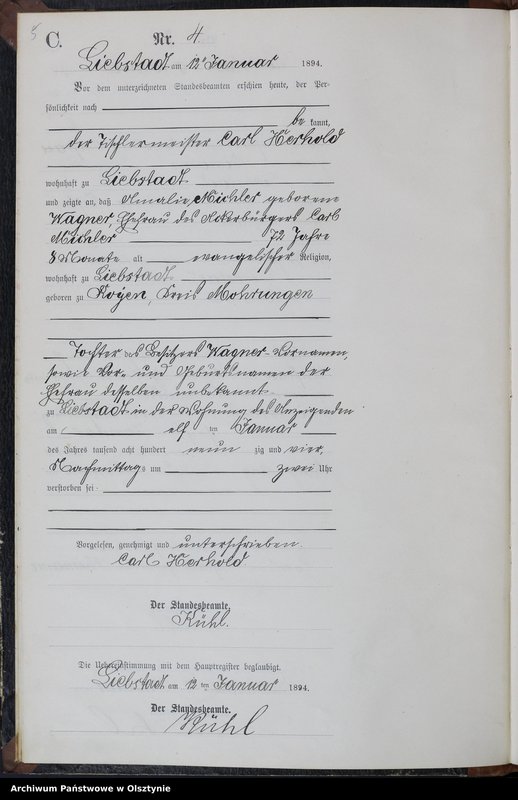 5
C.
Nr. 4
Liebstadt am 12ten Januar 1894.
Vor dem unterzeichneten Standesbeamten erschien heute, der Per-
sönlichkeit nach
be kannt,
der Tischlermeister Carl Herhold
wohnhaft zu Liebstadt
und zeigte an, daß Amalie Michler geborene
Wagner, Ehefrau des Ackerbürgers Carl
Michler 72 Jahre
8 Monate alt evangelischer Religion,
wohnhaft zu Liebstadt
geboren zu Royen, Kreis Mohrungen
Tochter des Besitzers Wagner Vornamen,
sowie Vor- und Geburtsnamen der
Ehefrau desselben unbekannt
zu Liebstadt in der Wohnung des Anzeigenden
am elf ten Januar
des Jahres tausend acht hundert neun zig und vier,
Nachmittags um zwei Uhr
verstorben sei:
Vorgelesen, genehmigt und unterschrieben.
Carl Herhold
Der Standesbeamte.
Kühl.
Die Uebereinstimmung mit dem Hauptregister beglaubigt.
Liebstadt am 12 ten Januar 1894.
Der Standesbeamte.
Kühl
Archiwum Państwowe w Olsztynie